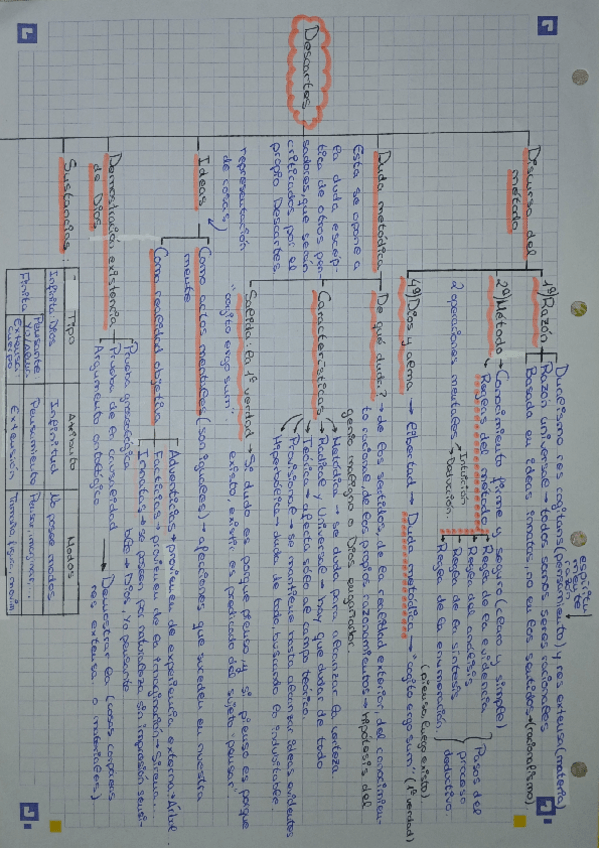 espíritu
mente
razón
Dualismo res cogitans (pensamiento) y res extensa (materia)
Descartes
Discurso del
método
1º) Razón
Razón universal → todos somos seres racionales
Basada en ideas innatas, no en los sentidos → (racionalismo)
2º) Método → Conocimiento firme y seguro (claro y simple)
Reglas del método
Regla de la evidencia
Regla del análisis
Regla de la síntesis
Regla de la enumeración
Pasos del
proceso
deductivo
2 operaciones mentales
Intuición
Deducción
4º) Dios y alma → libertad → Duda metódica → "cogito ergo sum" (1ª verdad)
(pienso, luego existo)
Duda metódica
Esta se opone a
la duda escép-
tica de otros pen-
sadores, que serán
criticados por el
propio Descartes
De qué duda? → de los sentidos, de la realidad exterior, del conocimien-
to racional, de los propios razonamientos → Hipótesis del
genio maligno o Dios engañador
Características
Metódica → se duda para alcanzar la certeza
Radical y Universal → hay que dudar de todo
Teórica → afecta sólo al campo teórico
Provisional → se mantiene hasta alcanzar ideas evidentes
Hiperbólica → duda de todo buscando lo indubitable
Salida: la 1ª verdad → Se duda es porque pienso y si pienso es porque
"cogito ergo sum"
existo, existir es predicado del sujeto "pensar".
Ideas
representación
de cosas)
Como actos mentales (son iguales) → afecciones que suceden en nuestra
mente
Como realidad objetiva
Adventicias → provienen de experiencia externa. Árbol
Facticias → provienen de la imaginación → Sirena...
Innatas → se poseen por naturaleza sin impresión sensi-
ble → Dios, Yo pensante
Demostración existencia
de Dios
Prueba gnoseológica
Prueba de la causalidad
Argumento ontológico
Demostrar la (cosas corporeas
res extensa o materiales)
Sustancias:
Tipo
Atributo
Modos
Infinita: Dios
Infinitud
No posee modos
Finita
Pensante:
Yo, alma
Pensamiento
Pensar, imaginar, ...
Extensa:
cuerpo
Extensión
Tamaño, figura, movim